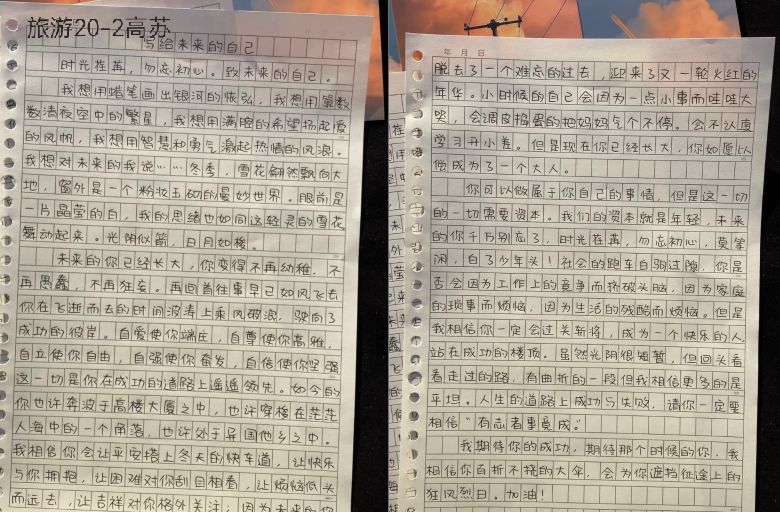 旅游20-2高苏
写给未来的自己
时光荏苒，勿忘初心。致未来的自己。
我想用蜡笔画出银河的恢弘，我想用算数
数清夜空中的繁星，我想用满腔的希望扬起爱
的风帆，我想用智慧和勇气激起热情的风浪。
我想对未来的我说……冬季，雪花翩然飘向大
地，窗外是一个粉妆玉砌的曼妙世界。眼前是
一片晶莹的白，我的思绪也如同这轻灵的雪花
舞动起来。光阴似箭，日月如梭。
未来的你已经长大，你变得不再幼稚，不
再愚蠢，不再狂妄。再回首往事早已如风飞去
你在飞逝而去的时间波涛上乘风破浪，驶向了
成功的彼岸。自爱使你端庄，自尊使你高雅，
自立使你自由，自强使你奋发，自信使你坚强
这一切是你在成功的道路上遥遥领先。如今的
你也许奔波于高楼大厦之中，也许穿梭在茫茫
人海中的一个角落，也许处于异国他乡之中。
我相信你会让平安搭上冬天的快车道，让快乐
与你拥抱，让困难对你刮目相看，让烦恼低头
而远去，让吉祥对你格外关注；因为未来的你
年 月 日
脱去了一个难忘的过去，迎来了又一轮火红的
年华。小时候的自己会因为一点小事而哇哇大
哭，会调皮捣蛋的把妈妈气个不停。会不认真
学习开小差。但是现在你已经长大，你如愿以
偿成为了一个大人。
你可以做属于你自己的事情，但是这一切
的一切需要资本。我们的资本就是年轻，未来
的你千万别忘了，时光荏苒，勿忘初心，莫等
闲，白了少年头！社会的跑车白驹过隙，你是
否会因为工作上的竞争而挤破头脑，因为家庭
的琐事而烦恼，因为生活的残酷而烦恼。但是
我相信你一定会过关斩将，成为一个快乐的人
站在成功的楼顶。虽然光阴很短暂，但回头看
看走过的路，有曲折的一段但我相信更多的是
平坦。人生的道路上成功与失败，请你一定要
相信“有志者事竟成。”
我期待你的成功，期待那个时候的你，我
相信你百折不挠的大伞，会为你遮挡征途上的
狂风烈日。加油！